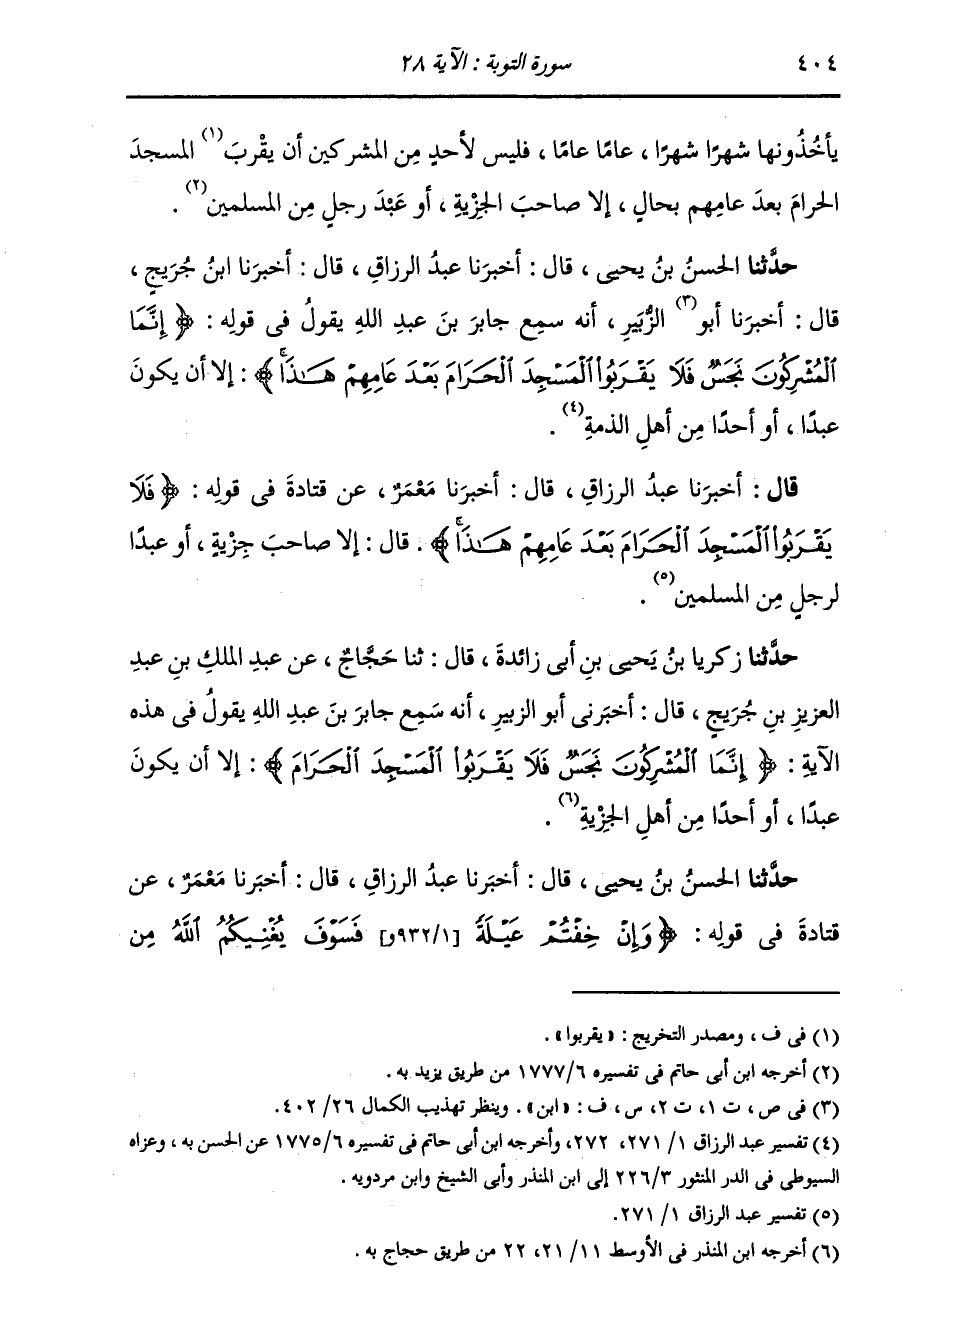 ٤٠٤ سورة التوبة : الآية ٢٨
يأخُذُونها شهرًا شهرًا ، عامًا عامًا ، فليس لأحدٍ مِن المشركين أن يقْربَ(١) المسجدَ
الحرامَ بعدَ عامِهم بحالٍ ، إلا صاحبَ الجِزْيةِ ، أو عَبْدَ رجلٍ مِن المسلمين(٢) .
حدَّثنا الحسنُ بنُ يحيى ، قال : أخبرَنا عبدُ الرزاقِ ، قال : أخبرَنا ابنُ جُرَيجٍ ،
قال : أخبرَنا أبو(٣) الزُّبَيرِ ، أنه سمِع جابرَ بنَ عبدِ اللهِ يقولُ فى قولِه : ﴿ إِنَّمَا
ٱلْمُشْرِكُونَ نَجَسٌ فَلَا يَقْرَبُوا۟ ٱلْمَسْجِدَ ٱلْحَرَامَ بَعْدَ عَامِهِمْ هَـٰذَاۚ ﴾ : إلا أن يكونَ
عبدًا ، أو أحدًا مِن أهلِ الذمةِ(٤) .
قال : أخبرَنا عبدُ الرزاقِ ، قال : أخبرَنا مَعْمَرٌ ، عن قتادةَ فى قولِه : ﴿ فَلَا
يَقْرَبُوا۟ ٱلْمَسْجِدَ ٱلْحَرَامَ بَعْدَ عَامِهِمْ هَـٰذَاۚ ﴾ . قال : إلا صاحبَ جِزْيةٍ ، أو عبدًا
لرجلٍ مِن المسلمين(٥) .
حدَّثنا زكريا بنُ يَحيى بنِ أبى زائدةَ ، قال : ثنا حَجَّاجٌ ، عن عبدِ الملكِ بنِ عبدِ
العزيزِ بنِ جُرَيجٍ ، قال : أخبَرنى أبو الزبيرِ ، أنه سَمِع جابرَ بنَ عبدِ اللهِ يقولُ فى هذه
الآيةِ : ﴿ إِنَّمَا ٱلْمُشْرِكُونَ نَجَسٌ فَلَا يَقْرَبُوا۟ ٱلْمَسْجِدَ ٱلْحَرَامَ ﴾ : إلا أن يكونَ
عبدًا ، أو أحدًا مِن أهلِ الجِزْيةِ(٦) .
حدَّثنا الحسنُ بنُ يحيى ، قال : أخبَرنا عبدُ الرزاقِ ، قال : أخبَرنا مَعْمَرٌ ، عن
قتادةَ فى قولِه : ﴿ وَإِنْ خِفْتُمْ عَيْلَةً [٩٣٢/١و] فَسَوْفَ يُغْنِيكُمُ ٱللَّهُ مِن
(١) فى ف ، ومصدر التخريج : « يقربوا » .
(٢) أخرجه ابن أبى حاتم فى تفسيره ١٧٧٧/٦ من طريق يزيد به .
(٣) فى ص ، ت ١، ت ٢، س ، ف : « ابن » . وينظر تهذيب الكمال ٢٦/ ٤٠٢.
(٤) تفسير عبد الرزاق ١/ ٢٧١، ٢٧٢، وأخرجه ابن أبى حاتم فى تفسيره ١٧٧٥/٦ عن الحسن به ، وعزاه
السيوطى فى الدر المنثور ٢٢٦/٣ إلى ابن المنذر وأبى الشيخ وابن مردويه .
(٥) تفسير عبد الرزاق ١/ ٢٧١.
(٦) أخرجه ابن المنذر فى الأوسط ١١/ ٢١، ٢٢ من طريق حجاج به .